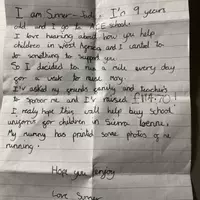 I am Sumer- I'm 9 years
old and I go to school.
I love hearing about how you help
children in West Africa and I wanted to
do something to support you.
So I decided to run a mile every day
for a week to raise money.
I've asked my friends family and teachers
to sponsor me and I've raised
I really hope this will help buy school
uniforms for children in Sierra Leone.
My mummy has printed some photos of me
running.
Hope you enjoy
Love Sumer